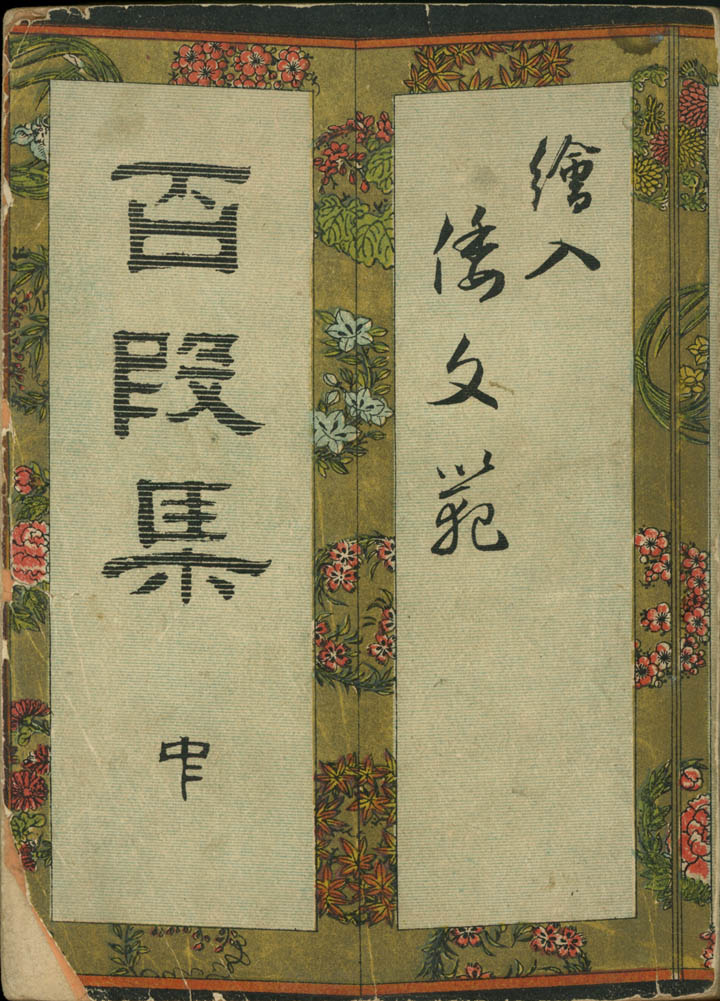 繪入
倭文範
百段集
中